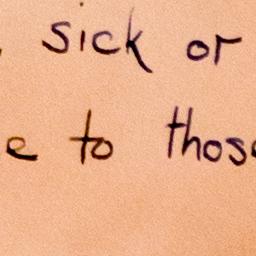 sick or
e to those